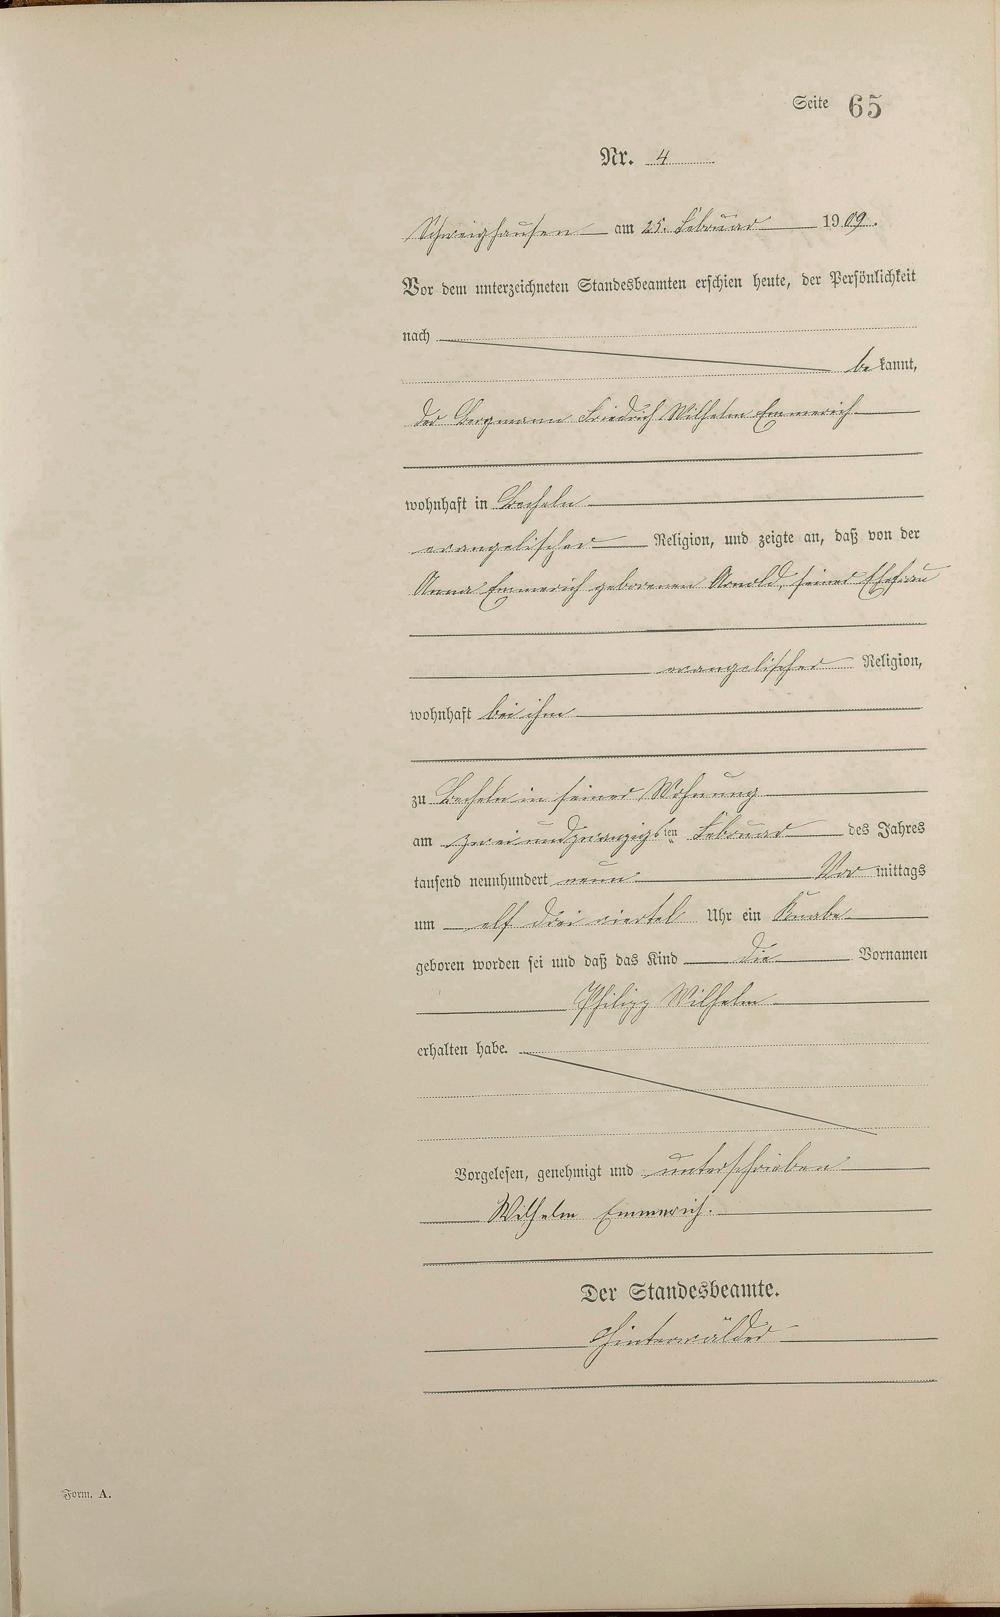 Seite 65
Nr. 4
Schweighausen am 25. Februar 1909.
Vor dem unterzeichneten Standesbeamten erschien heute, der Persönlichkeit
nach
bekannt,
der Bergmann Friedrich Wilhelm Emmerich
wohnhaft in Becheln
evangelischer Religion, und zeigte an, daß von der
Anna Emmerich geborenen Arnold, seiner Ehefrau
evangelischer Religion,
wohnhaft bei ihm
zu Becheln in seiner Wohnung
am zwei und zwanzigsten Februar des Jahres
tausend neunhundert neun Vor mittags
um elf drei viertel Uhr ein Knabe
geboren worden sei und daß das Kind die Vornamen
Philipp Wilhelm
erhalten habe.
Vorgelesen, genehmigt und unterschrieben
Wilhelm Emmerich.
Der Standesbeamte.
Hinterwälder
Form. A.